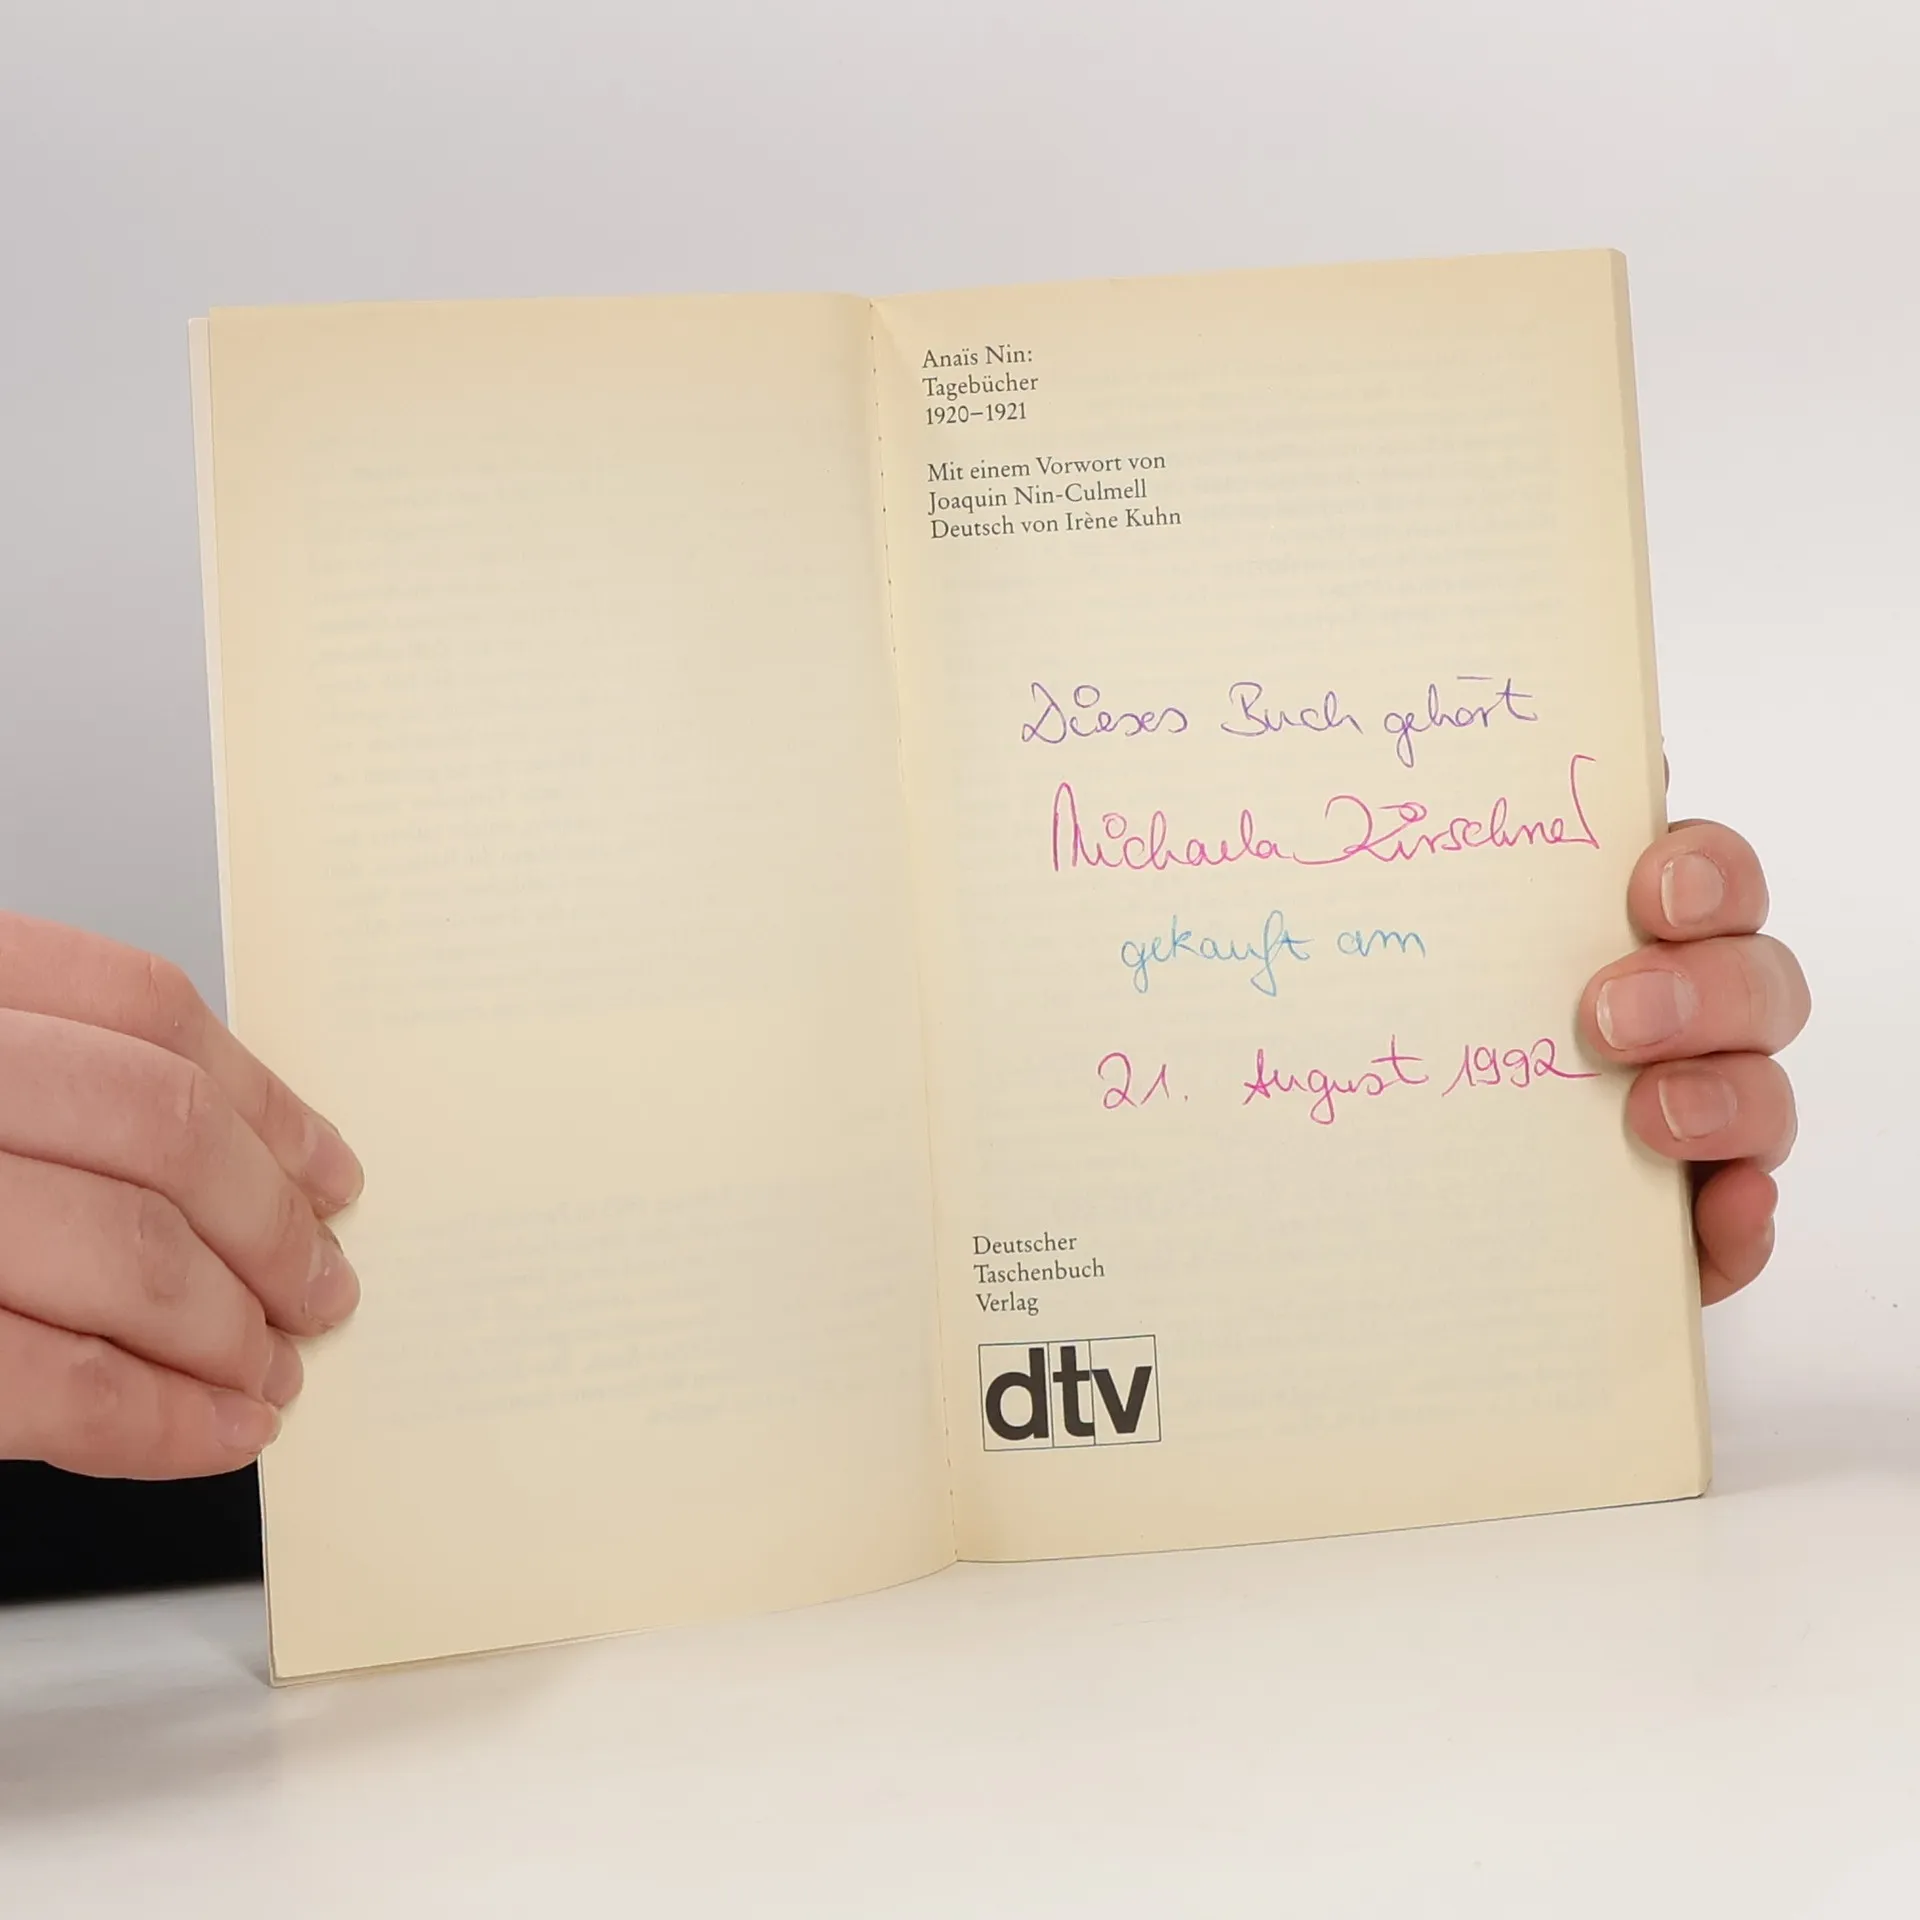 Anaïs Nin:
Tagebücher
1920–1921
Mit einem Vorwort von
Joaquin Nin-Culmell
Deutsch von Irène Kuhn
Dieses Buch gehört
Michaela Kirschner
gekauft am
21. August 1992
Deutscher
Taschenbuch
Verlag
dtv